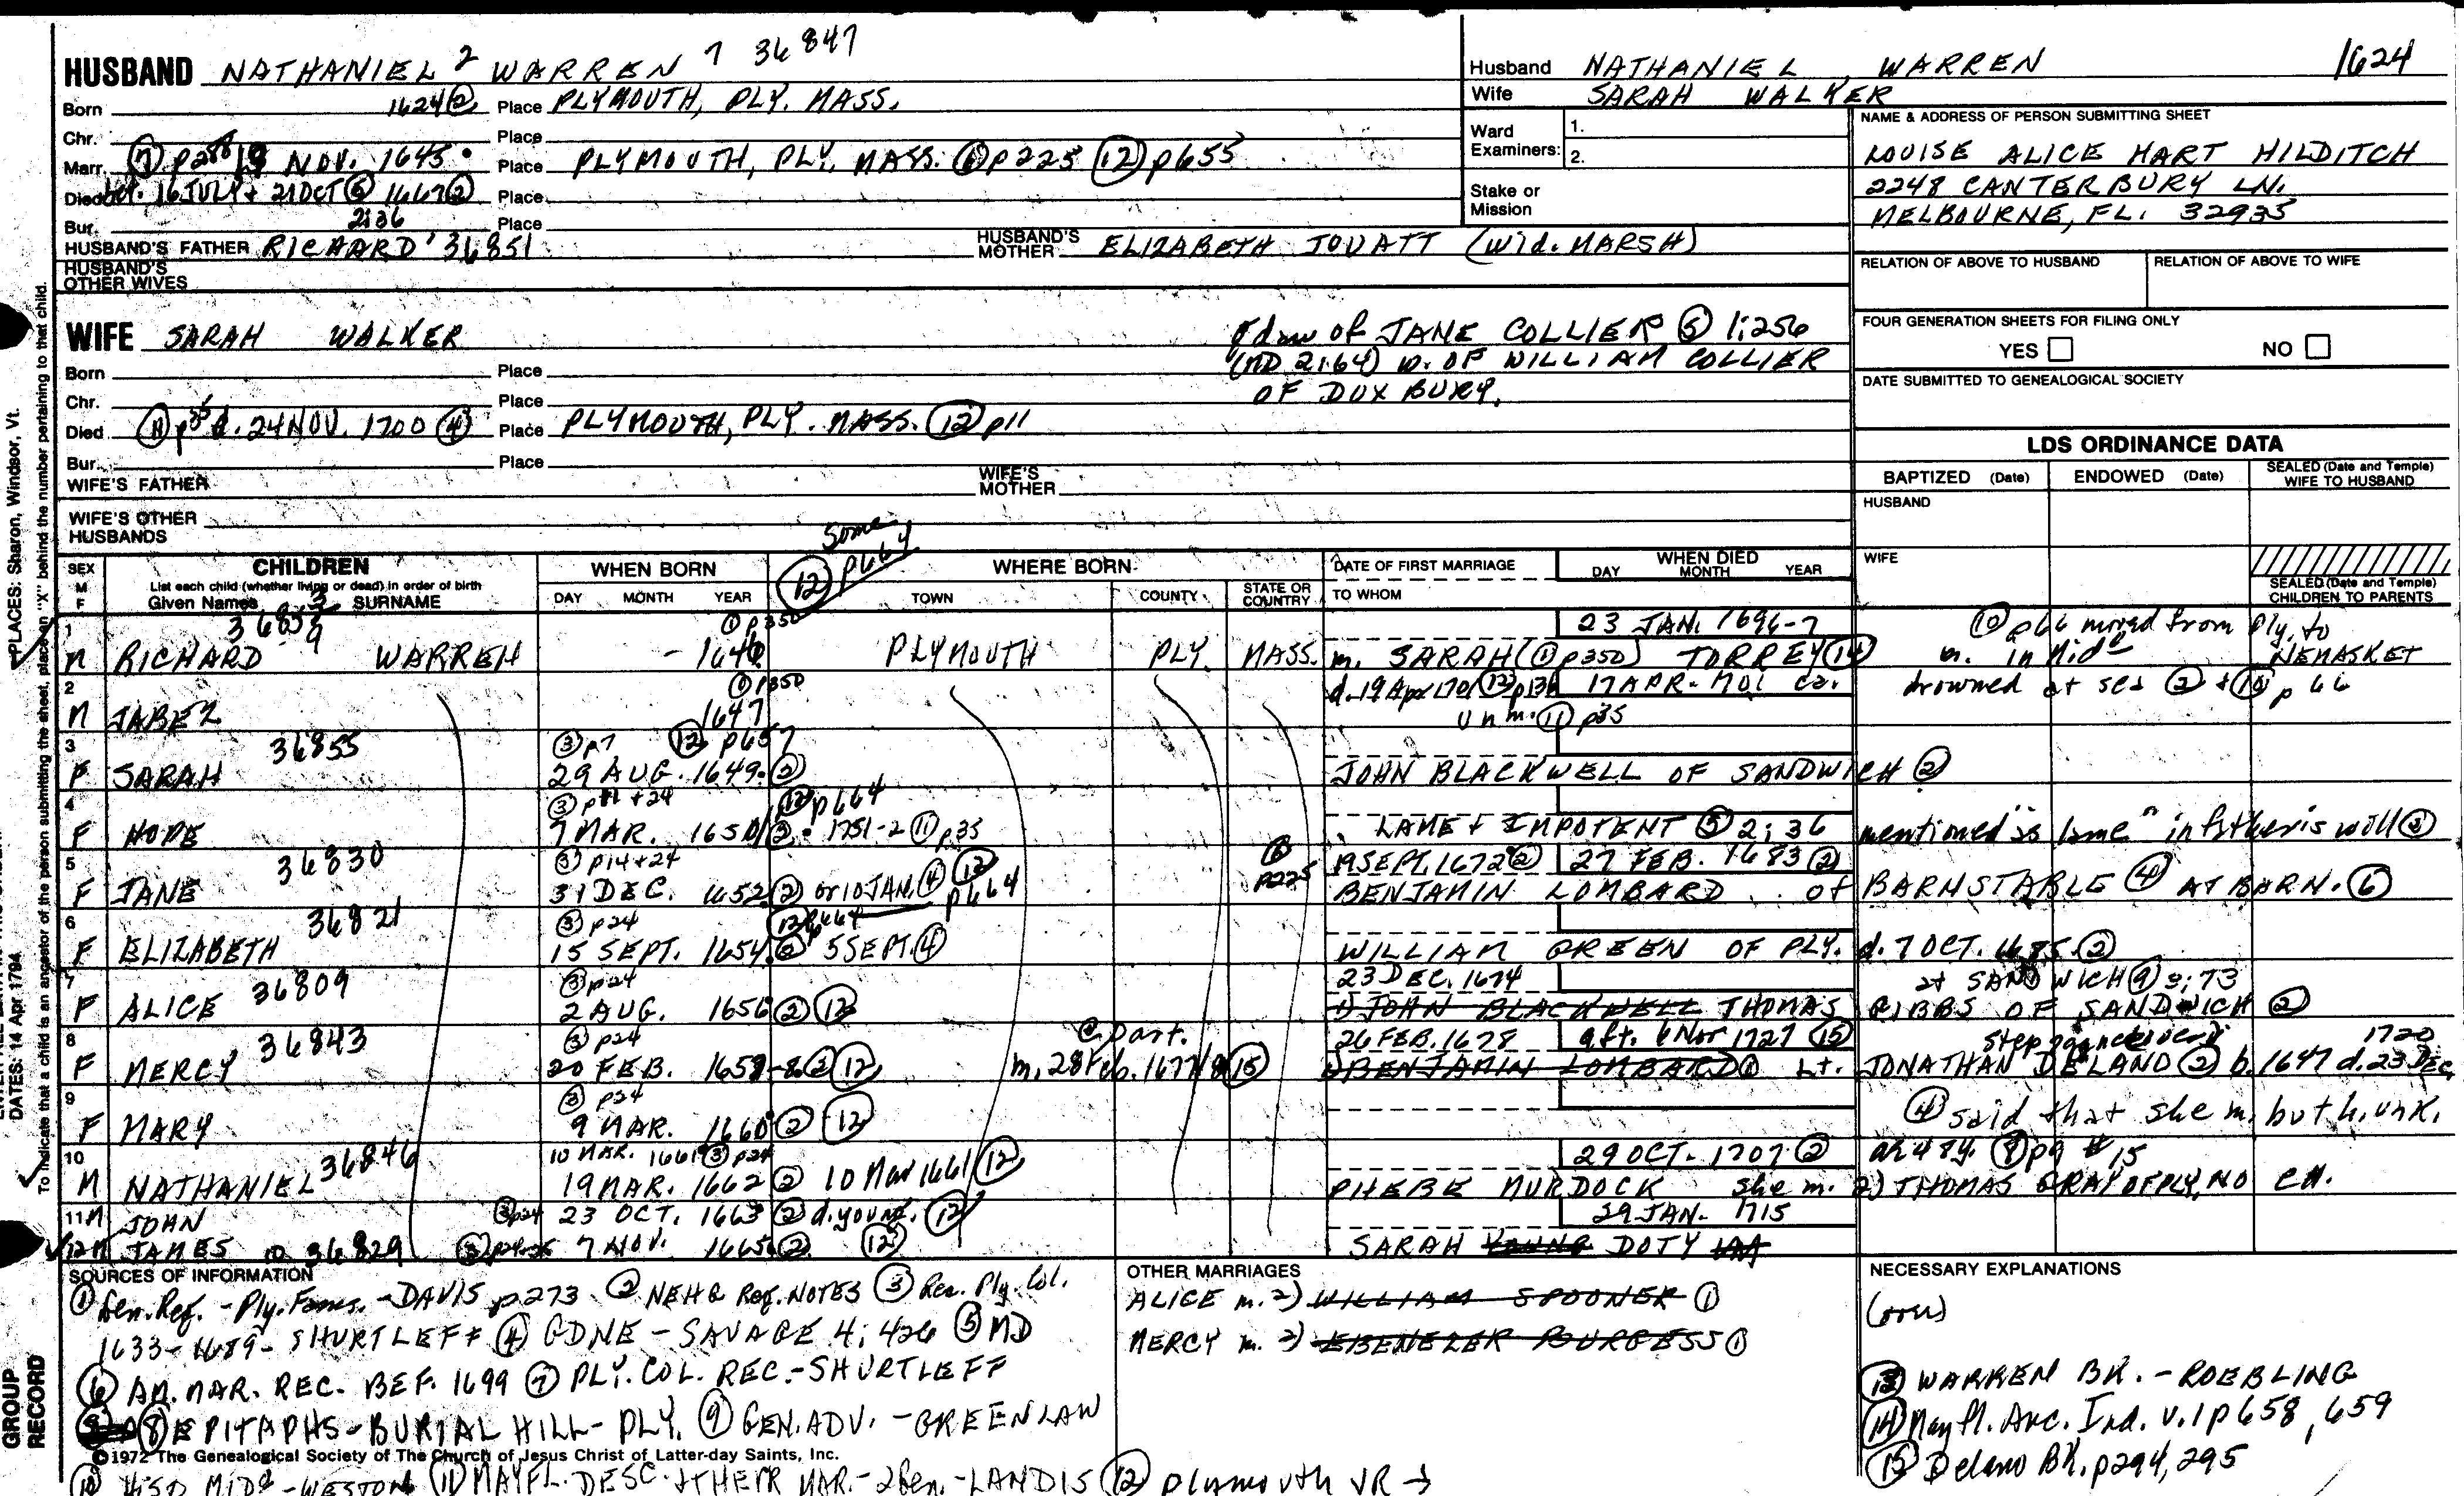 HUSBAND NATHANIEL 2 WARREN 7 36847
Born 1624 ② Place PLYMOUTH, PLY. MASS.
Chr. Place
Marr. ⑦ p288 19 NOV. 1645 Place PLYMOUTH, PLY. MASS. ⑥ p225 ⑫ p655
Died bet. 16 JULY + 21 OCT ⑤ 1667 ② Place
2:36
Bur. Place
HUSBAND'S FATHER RICHARD ' 36851 HUSBAND'S MOTHER ELIZABETH JOUATT (Wid. MARSH)
HUSBAND'S OTHER WIVES
Husband NATHANIEL WARREN 1624
Wife SARAH WALKER
Ward Examiners: 1.
2.
Stake or Mission
NAME & ADDRESS OF PERSON SUBMITTING SHEET
LOUISE ALICE HART HILDITCH
2248 CANTERBURY LN.
MELBOURNE, FL. 32935
RELATION OF ABOVE TO HUSBAND RELATION OF ABOVE TO WIFE
FOUR GENERATION SHEETS FOR FILING ONLY
YES NO
DATE SUBMITTED TO GENEALOGICAL SOCIETY
WIFE SARAH WALKER
of JANE COLLIER ⑤ 1:256
(MD 2:64) w. OF WILLIAM COLLIER
OF DUXBURY.
Born Place
Chr. Place
Died ⑪ p35 d. 24 NOV. 1700 ④ Place PLYMOUTH, PLY. MASS. ⑫ p11
Bur. Place
WIFE'S FATHER WIFE'S MOTHER
WIFE'S OTHER HUSBANDS
LDS ORDINANCE DATA
BAPTIZED (Date) ENDOWED (Date) SEALED (Date and Temple) WIFE TO HUSBAND
HUSBAND
WIFE
SEALED (Date and Temple) CHILDREN TO PARENTS
Some
⑫ p664
SEX M F CHILDREN WHEN BORN WHERE BORN DATE OF FIRST MARRIAGE WHEN DIED
List each child (whether living or dead) in order of birth
Given Names SURNAME DAY MONTH YEAR TOWN COUNTY STATE OR COUNTRY TO WHOM DAY MONTH YEAR
1 ① p350 23 JAN. 1696-7 ⑩ p66 moved from Ply. to
M RICHARD WARREN - 1646 PLYMOUTH PLY. MASS. m. SARAH (① p350) TORREY ⑭ in Mid NEMASKET
2 ① p350 d. 19 Apr 1701 ⑫ p136 17 APR. 1701 ca. drowned at sea ② + ⑩ p 66
M JABEZ 1647 unm. ⑪ p35
3 36855 ③ p7 ⑫ p657
F SARAH 29 AUG. 1649 ② JOHN BLACKWELL OF SANDWICH ②
4 ③ p11 + 24 ⑫ p664
F HOPE 7 MAR. 1650/ ② 1751-2 ⑪ p35 LAME + IMPOTENT ⑤ 2:36 mentioned as "lame" in father's will ②
5 36830 ③ p14+24 ⑥ p225 19 SEPT. 1672 ② 27 FEB. 1683 ②
F JANE 31 DEC. 1652 ② or 10 JAN. ④ ⑫ p664 BENJAMIN LOMBARD of BARNSTABLE ④ AT BARN. ⑥
6 36821 ③ p24 ⑫ p664
F ELIZABETH 15 SEPT. 1654 ② 5 SEPT. ④ WILLIAM GREEN OF PLY. d. 7 OCT. 1685 ②
7 36809 ③ p24 23 DEC. 1674 at SANDWICH ⑨ 3:73
F ALICE 2 AUG. 1656 ② ⑫ 1) JOHN BLACKWELL THOMAS GIBBS OF SANDWICH ②
8 36843 ③ p24 @ Dart. 26 FEB. 1678 aft. 6 Nov 1727 ⑮ 1720
F MERCY 20 FEB. 1657-8 ② ⑫ m. 28 Feb. 1677/8 ⑮ 1) BENJAMIN LOMBARD ① Lt. JONATHAN DELAND ② b. 1647 d. 23 Dec
9 ③ p24
F MARY 9 MAR. 1660 ② ⑫ ④ said that she m. but h. unk.
10 36846 10 MAR. 1661 ③ p24 29 OCT. 1707 ② ae 48y. ⑧ p9 #15
M NATHANIEL 19 MAR. 1662 ② 10 Mar 1661 ⑫ PHEBE MURDOCK she m. 2) THOMAS GRAY OF PLY. NO CH.
11 M JOHN ③ p24 23 OCT. 1663 ② d. young. ⑫ 29 JAN. 1715
12 M JAMES 36829 7 NOV. 1665 ② ⑫ SARAH YOUNG DOTY
SOURCES OF INFORMATION
① Gen. Reg. - Ply. Fams. - DAVIS p273 ② NEHG Reg. NOTES ③ Rec. Ply. Col.
1633-1689 - SHURTLEFF ④ GDNE - SAVAGE 4:426 ⑤ MD
⑥ AM. MAR. REC. BEF. 1699 ⑦ PLY. COL. REC. - SHURTLEFF
⑧ EPITAPHS - BURIAL HILL - PLY. ⑨ GEN. ADV. - GREENLAW
©1972 The Genealogical Society of The Church of Jesus Christ of Latter-day Saints, Inc.
⑩ HIST MIDd - WESTON ⑪ MAYFL. DESC. + THEIR MAR. - 2 Gen. - LANDIS ⑫ Plymouth VR →
OTHER MARRIAGES
ALICE m. 2) WILLIAM SPOONER ①
MERCY m. 2) EBENEZER BURGESS ①
NECESSARY EXPLANATIONS
(over)
⑬ WARREN BK. - ROEBLING
⑭ Mayfl. Anc. Ind. v. 1 p658, 659
⑮ Delano BK. p294, 295
PLACES: Sharon, Windsor, Vt.
DATES: 14 Apr 1794
To indicate that a child is an ancestor of the person submitting the sheet, place an "X" behind the number pertaining to that child.
GROUP RECORD